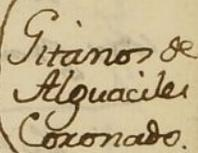 Gitanos de
Alguaciles
Coronado.